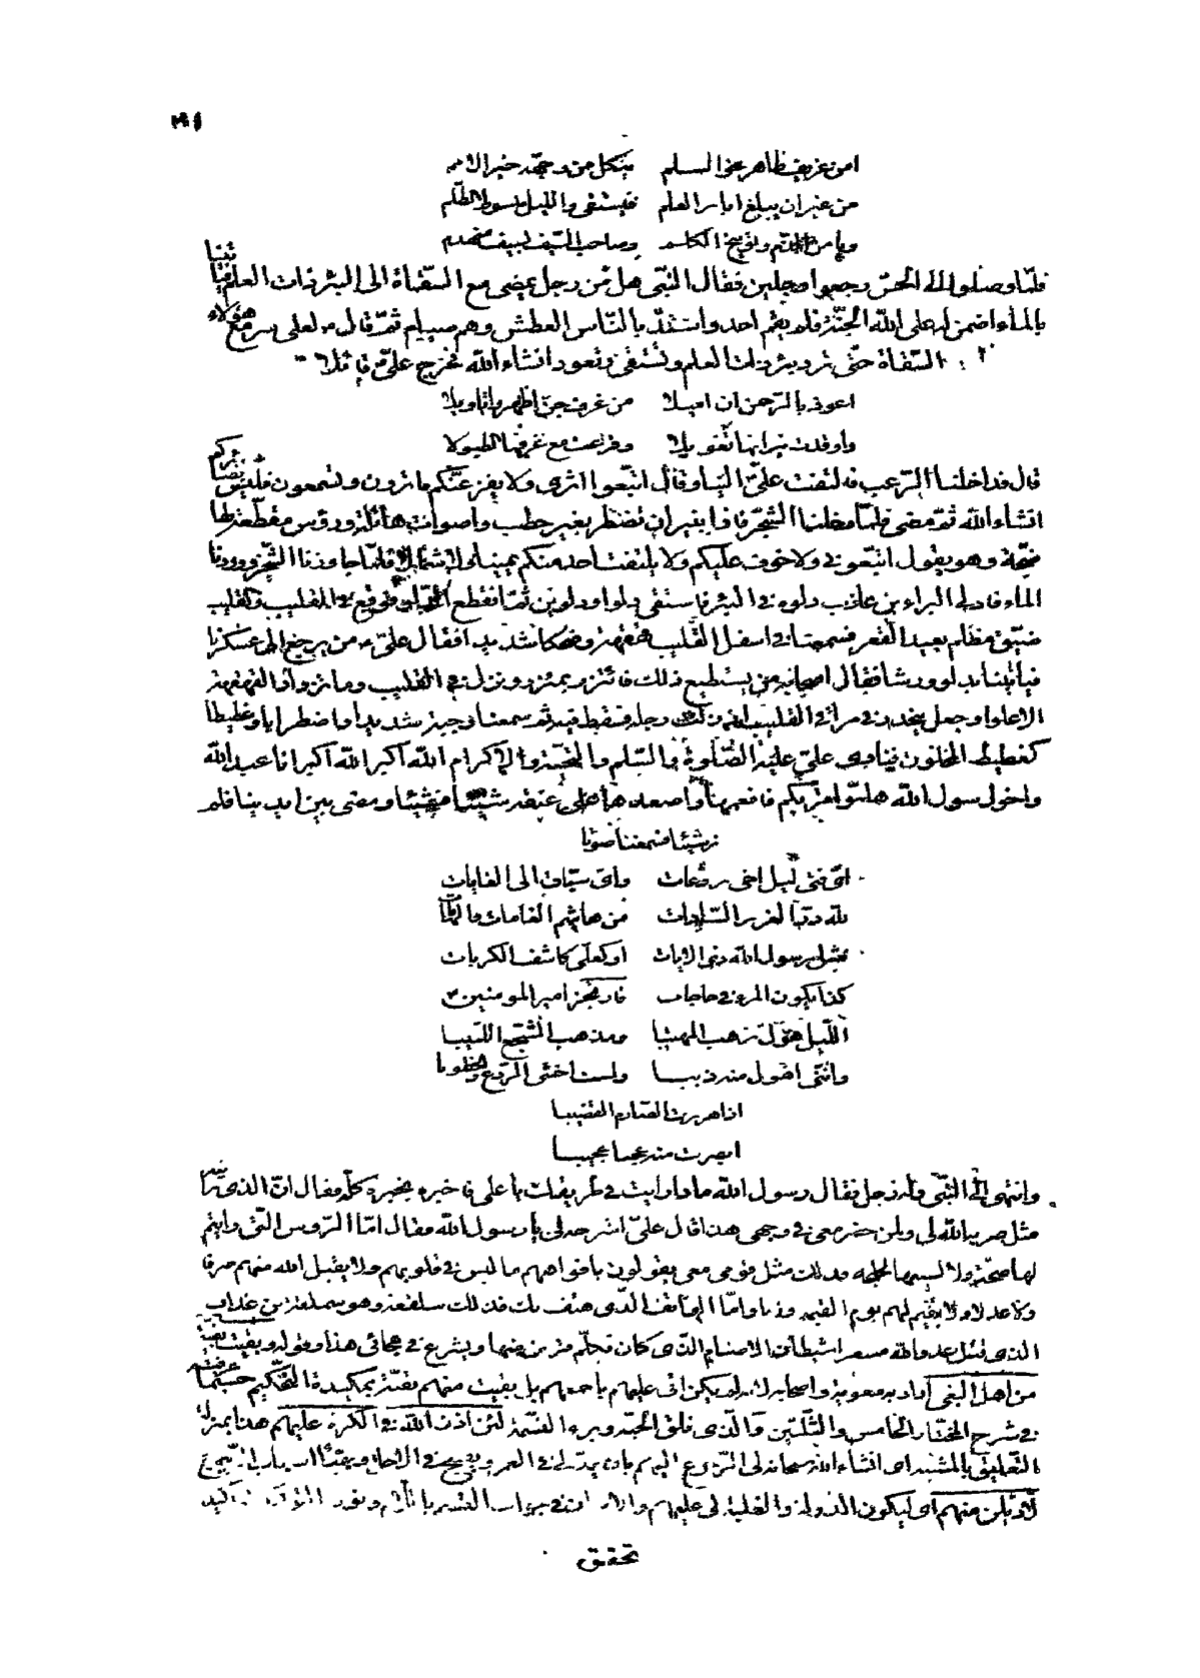 امن عزيف ظاهر نحو السلم ينكل من وجهه خير الامم
من غير ان يبلغ ابار العلم فيستقي والليل مبسوط الظلم
ويأمن الذم وتوبيخ الكلم وصاحب السيف لسيف منهدم
فلما وصلوا الى الحس رجعوا وجلين فقال النبى هل من رجل يمضى مع السقاة الى البئر ذات العلم فيأتينا
بالماء اضمن له على الله الجنة فلم يقم احد واشتد بالناس العطش وهم صيام ثم قال لعلى سر مع هؤلاء
السقاة حتى ترد بئر ذات العلم وتستقى وتعود انشاء الله فخرج على قائلا
اعوذ بالرحمن ان اميلا من عزف جن اظهروا تأويلا
واوقدت نيرانها تغويلا وقرعت مع عزفها الطبولا
قال فداخلنا الرعب فالتفت على الينا وقال اتبعوا اثرى ولا يفزعنكم ما ترون وتسمعون فليس بضائركم
انشاء الله ثم مضى فلما دخلنا الشجر فاذا بنيران تضطرم بغير حطب واصوات هائلة ورؤس مقطعة لها
ضجة وهو يقول اتبعونى ولا خوف عليكم ولا يلتفت احد منكم يمينا ولا شمالا فلما جاوزنا الشجر ووردنا
الماء فادلى البراء بن عازب دلوه فى البئر فاستقى دلوا ودلوين ثم انقطع الدلو فوقع فى القليب والقليب
ضيق مظلم بعيد القعر فسمعنا فى اسفل القليب قهقهة وضحكا شديدا فقال على من يرجع الى عسكرنا
فيأتينا بدلو ورشا فقال اصحابه من يستطيع ذلك فائتزر بمئزر ونزل فى القليب وما تزداد القهقهة
الا علوا وجعل ينحدر فى مراقى القليب اذ زلت رجله فسقط فيه ثم سمعنا وجبة شديدا واضطرابا وغطيطا
كغطيط المخنوق فنادى على عليه الصلوة والسلم والتحية والاكرام الله اكبر الله اكبر انا عبد الله
واخو رسول الله هلموا قربكم فافعمناها واصعدها على عنقه شيئا فشيئا ومضى بين ايدينا فلم
نر شيئا فسمعنا صوتا
اى فتى ليل اخى روعات واى سباق الى الغايات
لله در الغرر السادات من هاشم الهامات والقامات
مثل رسول الله ذى الايات او كعلى كاشف الكربات
كذا يكون المرء فى حاجات فارتجز امير المؤمنين
الليل هول يرهب المهيبا ويذهب المشجع اللبيبا
واننى اهول منه ذيبا ولست اخشى الروع والخطوبا
اذا هززت الصارم القضيبا
ابصرت منه عجبا عجيبا
وانتهى الى النبى وله زجل فقال رسول الله ماذا رايت فى طريقك يا على فاخبره بخبره كله فقال ان الذى رايته
مثل ضربه الله لى ولمن حضر معى فى وجهى هذا قال على اشرحه لى يا رسول الله فقال اما الرؤس التى رايتم
لها ضجة ولالسنتها لجلجة فذلك مثل قومى معى يقولون بافواههم ما ليس فى قلوبهم ولا يقبل الله منهم صرفا
ولا عدلا ولا يقيم لهم يوم القيمة وزنا واما الهاتف الذى هتف بك فذلك سلقعة وهو سملقة بن عزاف
الذى قتل عدو الله مسعر شيطان الاصنام الذى كان يكلم قريش منها ويشرع فى هجائى هذا وقوله وبقيت بقية
من اهل البغى اراد به معوية واصحابه لانه لم يكن اتى عليهم باجمعهم بل بقيت منهم بقية بمكيدة التحكيم حسبما عرفته
فى شرح المختار الخامس والثلثين والذى فلق الحبة وبرء النسمة لئن اذن الله فى الكرة عليهم هذا بمنزلة
التعليق بالمشية اى انشاء الله سبحانه لى الرجوع اليهم
لاديلن منهم اى ليكون الدولة والغلبة لى عليهم
تحقق